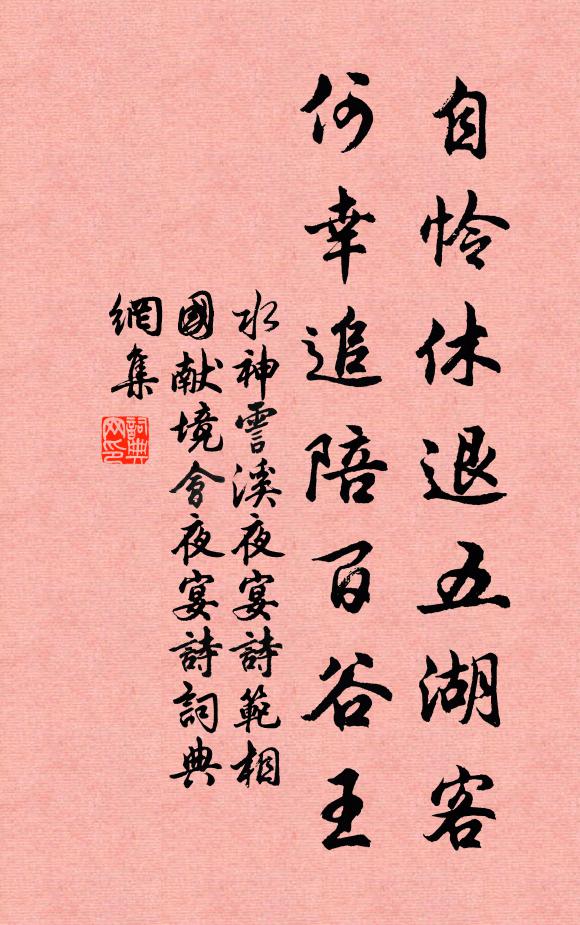 自怜休退五湖客
何幸追陪百谷王
水神雪溪夜宴詩範相
國献境會夜宴詩詞典
網集
詞典
网印